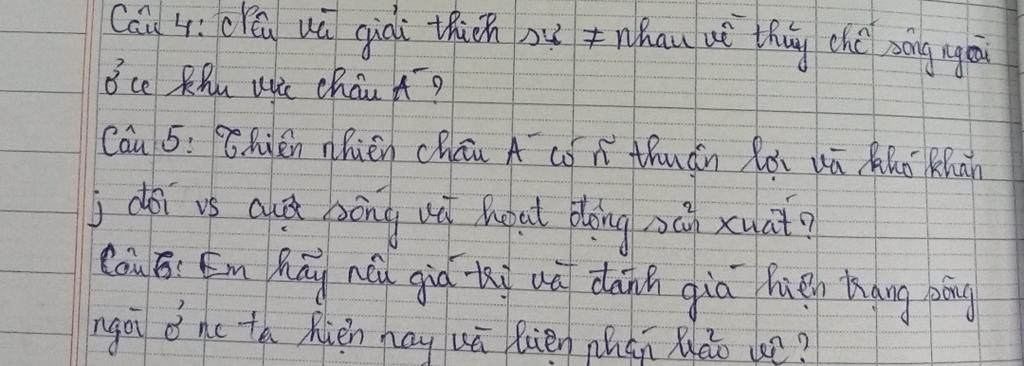 Câu 4: Nêu và giải thích sự ≠ nhau về thủy chế sông ngòi
ở các khu vực châu Á?
Câu 5: Thiên nhiên châu Á có n~ thuận lợi và khó khăn
j đối vs cuộc sống và hoạt động sản xuất?
Câu 6: Em hãy nêu giá trị và đánh giá hiện trạng sông
ngòi ở nc ta hiện nay và biện pháp bảo vệ?